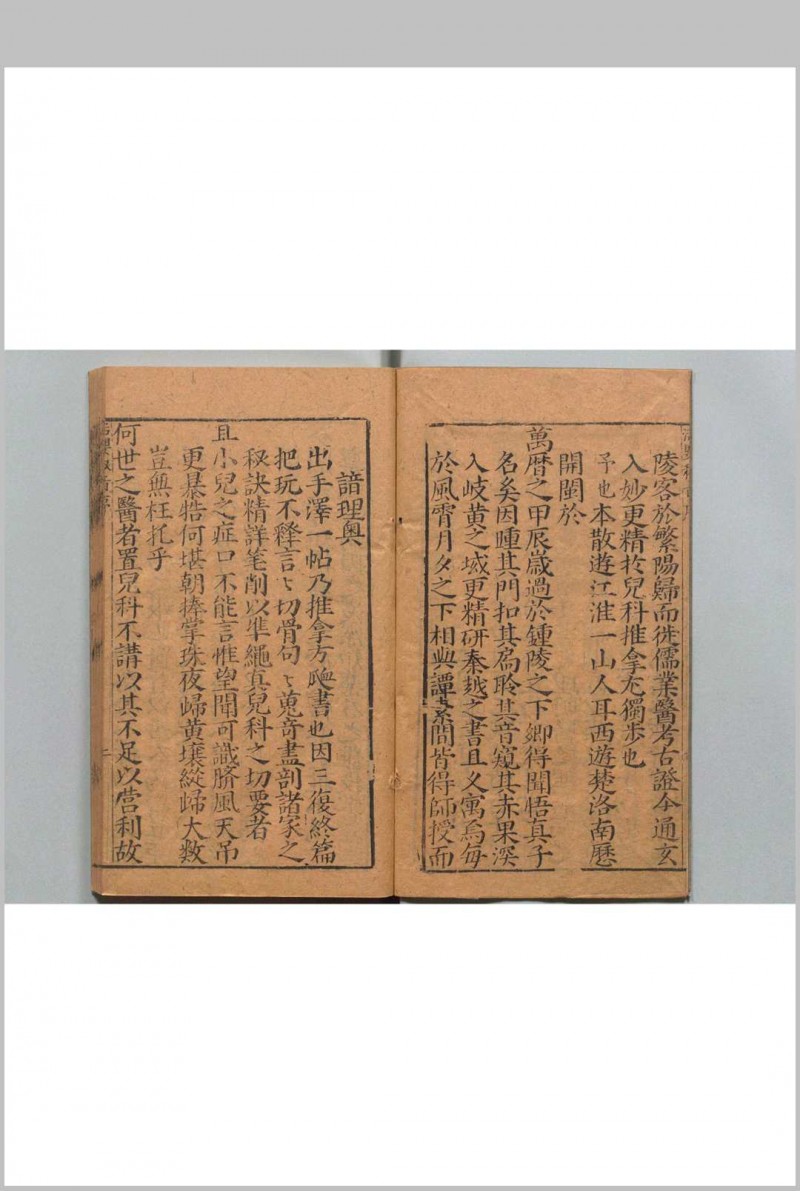 陵客於繁陽歸而徙儒業醫考古證今通玄
入妙更精於兒科推拿尤獨步也
予也本散遊江淮一山人耳西遊楚洛南歷
開閩於
萬曆之甲辰歲過於鍾陵之下鄉得聞悟真子
名矣因踵其門扣其扃聆其音窺其赤果深
入岐黃之域更精研秦越之書且又寓焉每
於風霄月夕之下相與譚素問皆得師授而
諳理奧
出手澤一帖乃推拿方啞書也因三復終篇
把玩不釋言〻切骨句〻蒐奇盡剖諸家之
秘訣精詳笔削以準繩真兒科之切要者
且小兒之症口不能言惟望聞可識臍風天吊
更暴牿何堪朝捧掌珠夜歸黃壤縱歸大数
豈無枉扎乎
何世之醫者置兒科不講以其不足以营利故